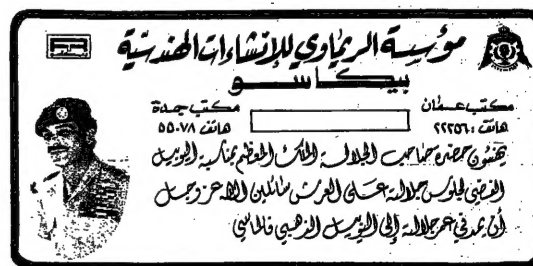 مؤسسة الريماوي للإنشاءات الهندسية
بيكاسو
مكتب عمان مكتب جدة
هاتف: ٢٢٢٥٦ هاتف ٥٥٠٧٨
يهنئون حضرة صاحب الجلالة الملك المعظم بمناسبة اليوبيل
الفضي لجلوس جلالته على العرش سائلين الله عز وجل
أن يمد في عمر جلالته إلى اليوبيل الذهبي فالماسي